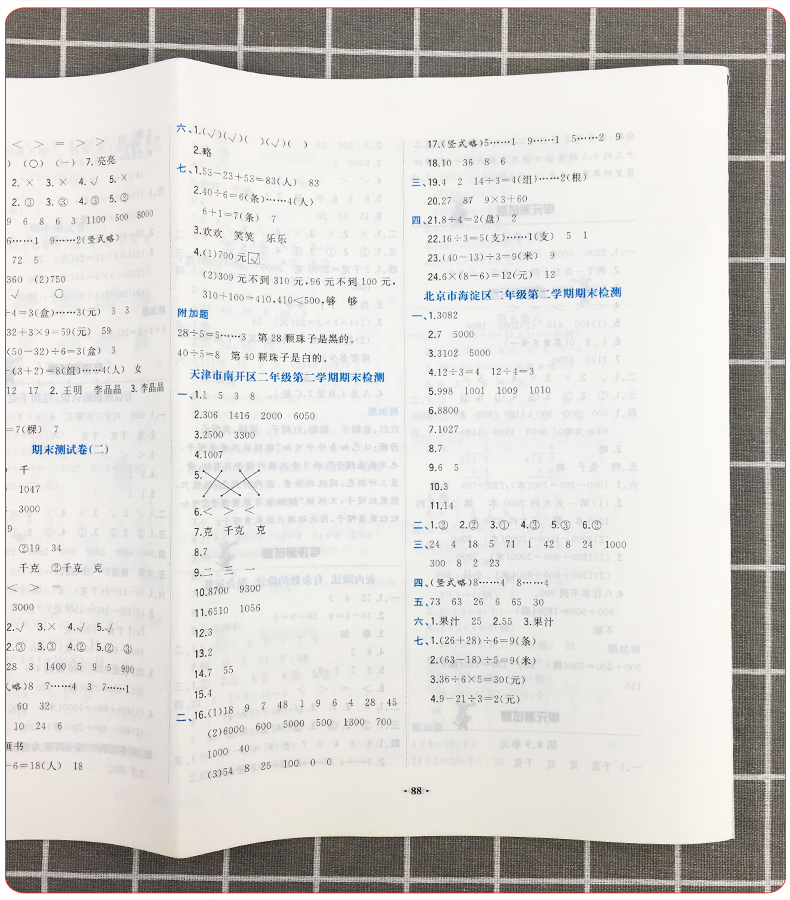 < > = > >
) (○) (一) 7.亮亮
2.× 3.× 4.√ 5.×
2.③ 3.③ 4.③ 5.②
9 6 8 6 3 1100 500 8000
6……1 9……2(竖式略)
72 5
360 (2)750
√ ○
÷4=3(盒)……3(元) 3 3
32+3×9=59(元) 59
(50-32)÷6=3(盒) 3
÷(3+2)=8(组)……4(人) 女
12 17 2.王明 李晶晶 3.李晶晶
=7(棵) 7
期末测试卷(二)
千
1047
3000
9
②19 34
千克 ②千克 克
< > =
3000
2.√ 3.× 4.√ 5.√
2.③ 3.③ 4.② 5.② ③
28 3 1400 5 9 5 900
式略)8 7……4 3 7……1
60 32
10 24 6
画书
-6=18(人) 18
六、1.(√)(√)( )(√)( )
2.略
七、1.53-23+53=83(人) 83
2.40÷6=6(条)……4(人)
6+1=7(条) 7
3.欢欢 笑笑 乐乐
4.(1)700元☑
(2)309元不到310元,96元不到100元,
310+100=410,410<500,够 够
附加题
28÷5=5……3 第28颗珠子是黑的。
40÷5=8 第40颗珠子是白的。
天津市南开区二年级第二学期期末检测
一、1.1 5 3 8
2.306 1416 2000 6050
3.2500 3300
4.1007
5.
6.< > <
7.克 千克 克
8.7
9.二 三 一
10.8700 9300
11.6510 1056
12.3
13.2
14.7 55
15.4
二、16.(1)18 9 7 48 1 9 6 4 28 45
(2)6000 600 5000 500 1300 700
1000 40
(3)54 8 25 100 0 0
17.(竖式略)5……1 9……1 5……2 9
18.10 36 8 6
三、19.4 2 14÷3=4(组)……2(根)
20.27 87 9×3+60
四、21.8÷4=2(盘) 2
22.16÷3=5(支)……1(支) 5 1
23.(40-13)÷3=9(米) 9
24.6×(8-6)=12(元) 12
北京市海淀区二年级第二学期期末检测
一、1.3082
2.7 5000
3.3102 5000
4.12÷3=4 12÷4=3
5.998 1001 1009 1010
6.8800
7.1027
8.7
9.6 5
10.3
11.14
二、1.② 2.② 3.① 4.③ 5.③ 6.②
三、24 4 18 5 71 1 42 8 24 1000
300 8 2 23
四、(竖式略)8……4 8……4
五、73 63 26 6 65 30
六、1.果汁 25 2.55 3.果汁
七、1.(26+28)÷6=9(条)
2.(63-18)÷5=9(米)
3.36÷6×5=30(元)
4.9-21÷3=2(元)
·88·